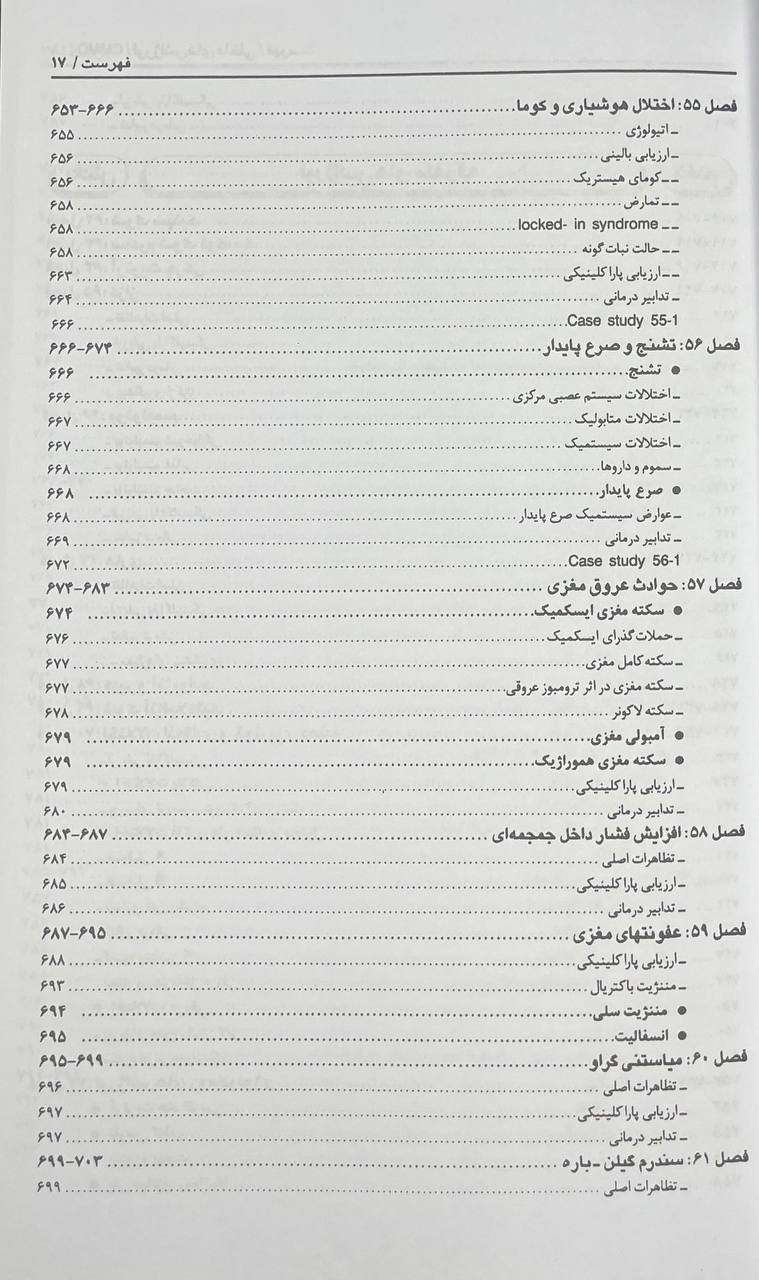 فهرست / ۱۷
فصل ۵۵: اختلال هوشیاری و کوما ............ ۶۵۳-۶۶۶
ـ اتیولوژی ............ ۶۵۵
ـ ارزیابی بالینی ............ ۶۵۶
ــ کومای هیستریک ............ ۶۵۶
ــ تمارض ............ ۶۵۸
ــ locked- in syndrome ............ ۶۵۸
ــ حالت نبات گونه ............ ۶۵۸
ــ ارزیابی پاراکلینیکی ............ ۶۶۳
ـ تدابیر درمانی ............ ۶۶۴
Case study 55-1 ............ ۶۶۶
فصل ۵۶: تشنج و صرع پایدار ............ ۶۶۶-۶۷۴
● تشنج ............ ۶۶۶
ـ اختلالات سیستم عصبی مرکزی ............ ۶۶۶
ـ اختلالات متابولیک ............ ۶۶۷
ـ اختلالات سیستمیک ............ ۶۶۷
ـ سموم و داروها ............ ۶۶۸
● صرع پایدار ............ ۶۶۸
ـ عوارض سیستمیک صرع پایدار ............ ۶۶۸
ـ تدابیر درمانی ............ ۶۶۹
Case study 56-1 ............ ۶۷۲
فصل ۵۷: حوادث عروق مغزی ............ ۶۷۴-۶۸۳
● سکته مغزی ایسکمیک ............ ۶۷۴
ـ حملات گذرای ایسکمیک ............ ۶۷۶
ـ سکته کامل مغزی ............ ۶۷۷
ـ سکته مغزی در اثر ترومبوز عروقی ............ ۶۷۷
ـ سکته لاکونر ............ ۶۷۸
● آمبولی مغزی ............ ۶۷۹
● سکته مغزی هموراژیک ............ ۶۷۹
ـ ارزیابی پاراکلینیکی ............ ۶۷۹
ـ تدابیر درمانی ............ ۶۸۰
فصل ۵۸: افزایش فشار داخل جمجمه‌ای ............ ۶۸۴-۶۸۷
ـ تظاهرات اصلی ............ ۶۸۴
ـ ارزیابی پاراکلینیکی ............ ۶۸۵
ـ تدابیر درمانی ............ ۶۸۶
فصل ۵۹: عفونتهای مغزی ............ ۶۸۷-۶۹۵
ـ ارزیابی پاراکلینیکی ............ ۶۸۸
ـ مننژیت باکتریال ............ ۶۹۳
● مننژیت سلی ............ ۶۹۴
● انسفالیت ............ ۶۹۵
فصل ۶۰: میاستنی گراو ............ ۶۹۵-۶۹۹
ـ تظاهرات اصلی ............ ۶۹۶
ـ ارزیابی پاراکلینیکی ............ ۶۹۷
ـ تدابیر درمانی ............ ۶۹۷
فصل ۶۱: سندرم گیلن ـ باره ............ ۶۹۹-۷۰۳
ـ تظاهرات اصلی ............ ۶۹۹